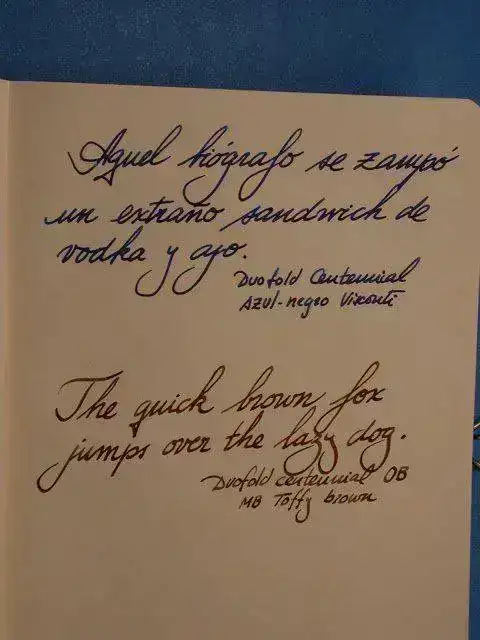 Aquel biógrafo se zampó
un extraño sandwich de
vodka y ajo.
Duofold Centennial
Azul-negro Visconti
The quick brown fox
jumps over the lazy dog.
Duofold centennial OB
MB Toffy brown